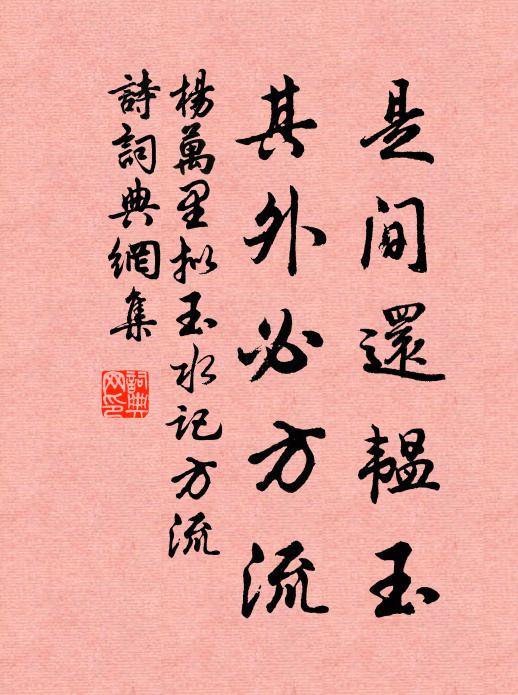 是間還韞玉
其外必方流
楊萬里拟玉水记方流
詩詞典網集
詞典网印